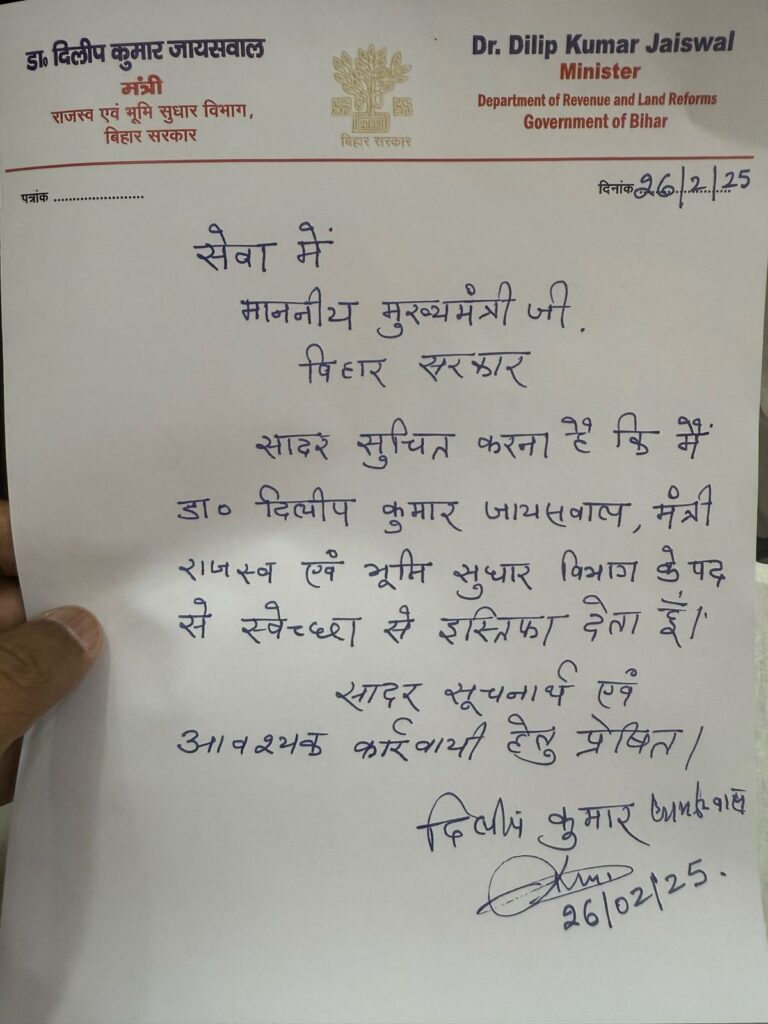 डा० दिलीप कुमार जायसवाल
मंत्री
राजस्व एवं भूमि सुधार विभाग,
बिहार सरकार
बिहार सरकार
Dr. Dilip Kumar Jaiswal
Minister
Department of Revenue and Land Reforms
Government of Bihar
पत्रांक .......................
दिनांक 26/2/25
सेवा में
माननीय मुख्यमंत्री जी.
बिहार सरकार
सादर सुचित करना है कि मैं
डा० दिलीप कुमार जायसवाल, मंत्री
राजस्व एवं भूमि सुधार विभाग के पद
से स्वेच्छा से इस्तिफा देता हूँ।
सादर सूचनार्थ एवं
आवश्यक कार्रवायी हेतु प्रेषित।
दिलीप कुमार जायसवाल
26/02/25.